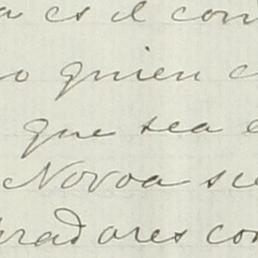 es el con
o quien
que sea
Novoa se
radores con